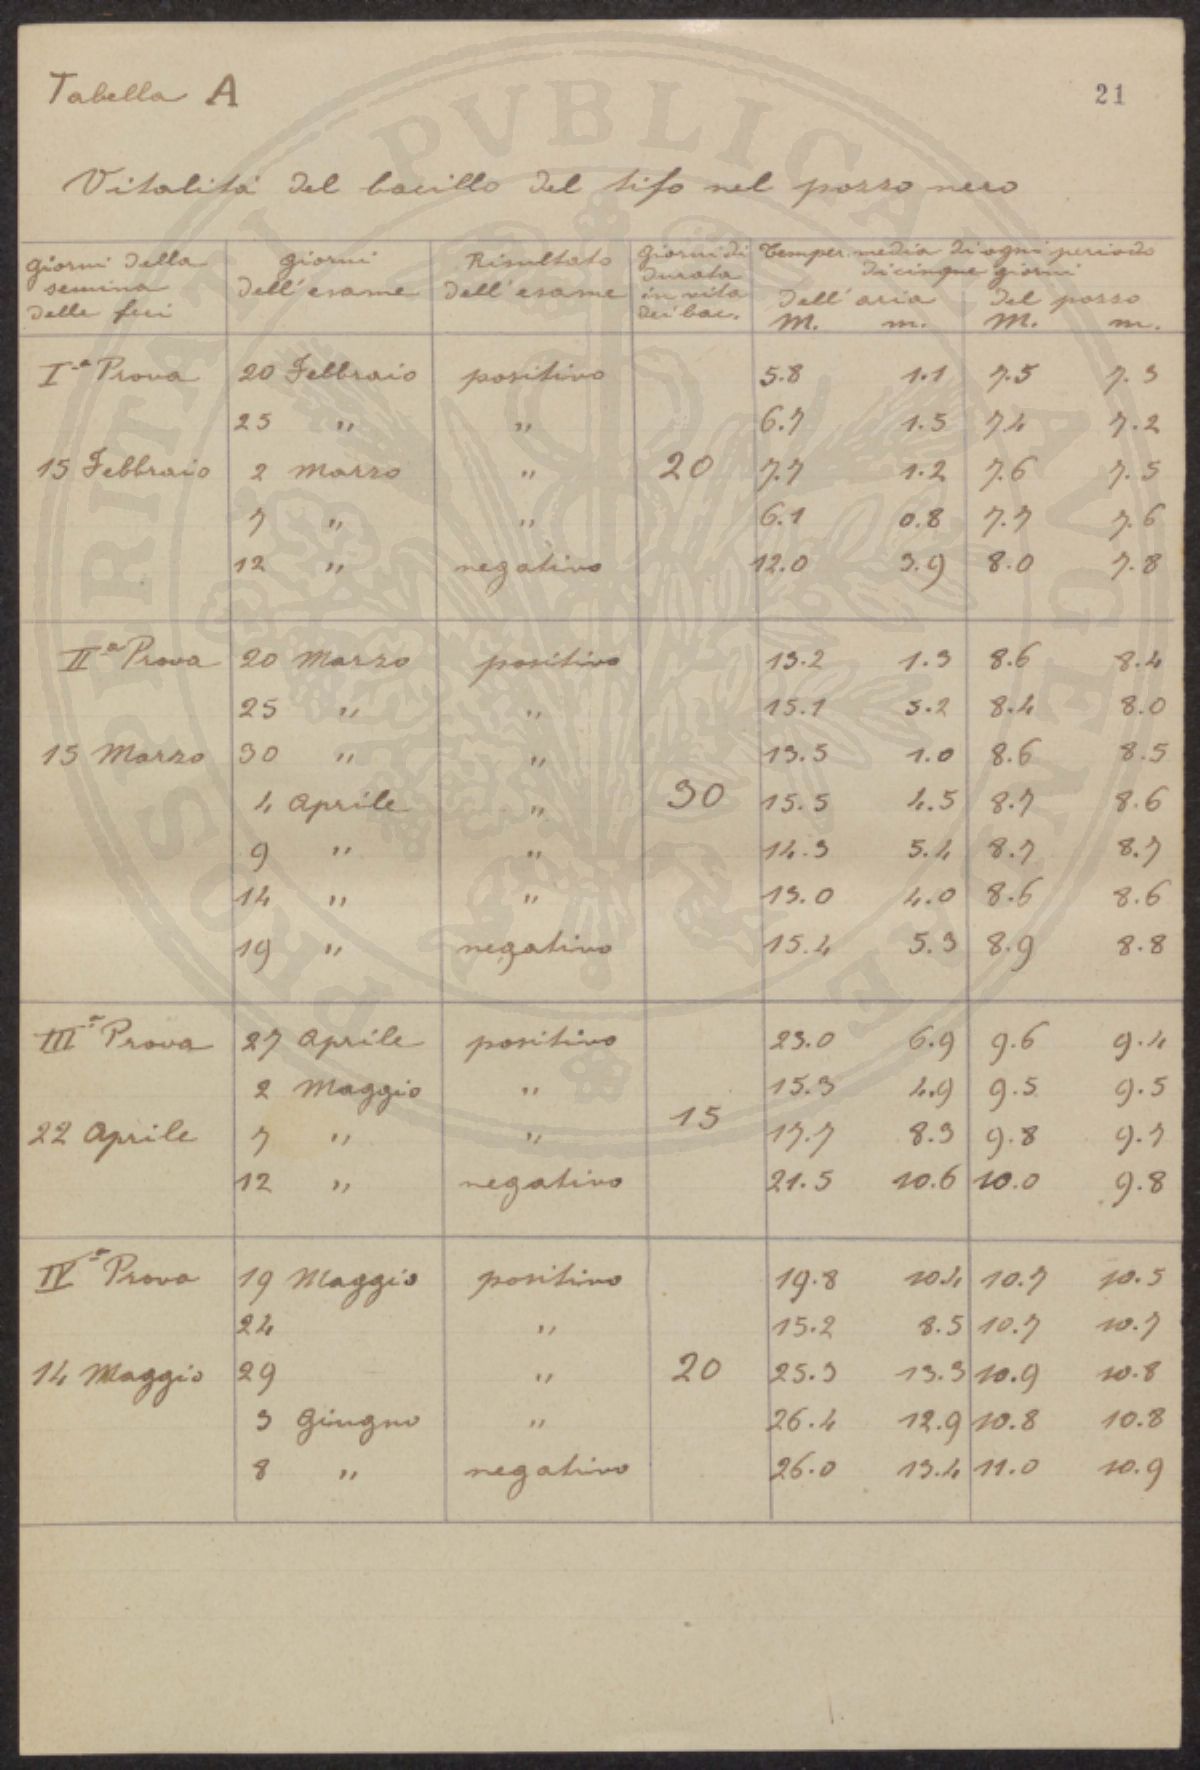 Tabella A
21
Vitalità del bacillo del tifo nel pozzo nero
Giorni della semina delle feci | Giorni dell'esame | Risultato dell'esame | Giorni di durata in vita dei bac. | Temper. media di ogni periodo di cinque giorni
dell'aria | del pozzo
M. m. | M. m.
Iª Prova 20 Febbraio positivo 5.8 1.1 7.5 7.3
25 " " 6.7 1.5 7.4 7.2
15 Febbraio 2 Marzo " 20 7.7 1.2 7.6 7.5
7 " " 6.1 0.8 7.7 7.6
12 " negativo 12.0 3.9 8.0 7.8
IIª Prova 20 Marzo positivo 13.2 1.3 8.6 8.4
25 " " 15.1 3.2 8.4 8.0
15 Marzo 30 " " 13.5 1.0 8.6 8.5
4 Aprile " 30 15.5 4.5 8.7 8.6
9 " " 14.3 5.4 8.7 8.7
14 " " 13.0 4.0 8.6 8.6
19 " negativo 15.4 5.3 8.9 8.8
IIIª Prova 27 Aprile positivo 23.0 6.9 9.6 9.4
2 Maggio " 15.3 4.9 9.5 9.5
22 Aprile 7 " " 15 17.7 8.3 9.8 9.7
12 " negativo 21.5 10.6 10.0 9.8
IVª Prova 19 Maggio positivo 19.8 10.4 10.7 10.5
24 " 15.2 8.5 10.7 10.7
14 Maggio 29 " 20 25.3 13.3 10.9 10.8
3 Giugno " 26.4 12.9 10.8 10.8
8 " negativo 26.0 13.4 11.0 10.9
PROSPERITATI PVBLICAE AVGENDAE